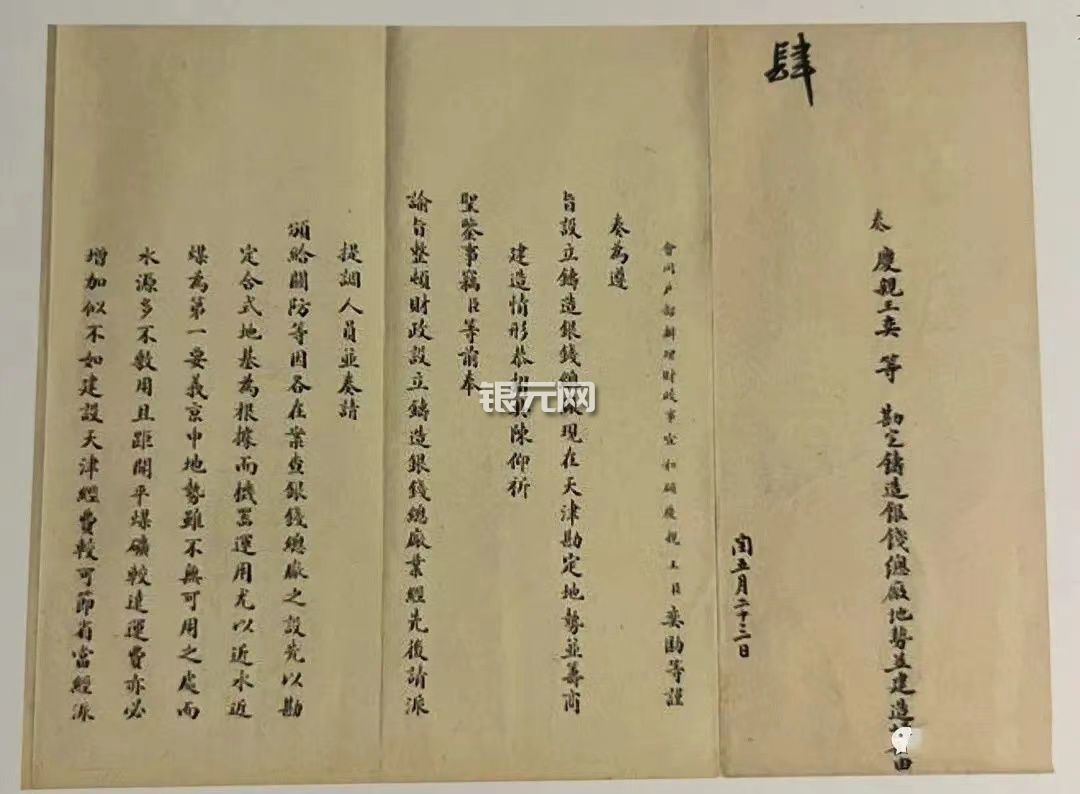 肆
奏 慶親王奕 等 勘定鑄造銀錢總廠地勢並建造 由
閏五月二十三日
會同戶部辦理財政事宜和碩慶親王臣奕劻等謹
奏為遵
旨設立鑄造銀錢總廠現在天津勘定地勢並籌商
建造情形恭摺具陳仰祈
聖鑒事竊臣等前奉
諭旨整頓財政設立鑄造銀錢總廠業經先後請派
提調人員並奏請
頒給關防等因各在案查銀錢總廠之設先以勘
定合式地基為根據而機器運用尤以近水近
煤為第一要義京中地勢雖不無可用之處而
水源多不敷用且距開平煤礦較遠運費亦必
增加似不如建設天津經費較可節省當經派
银元网